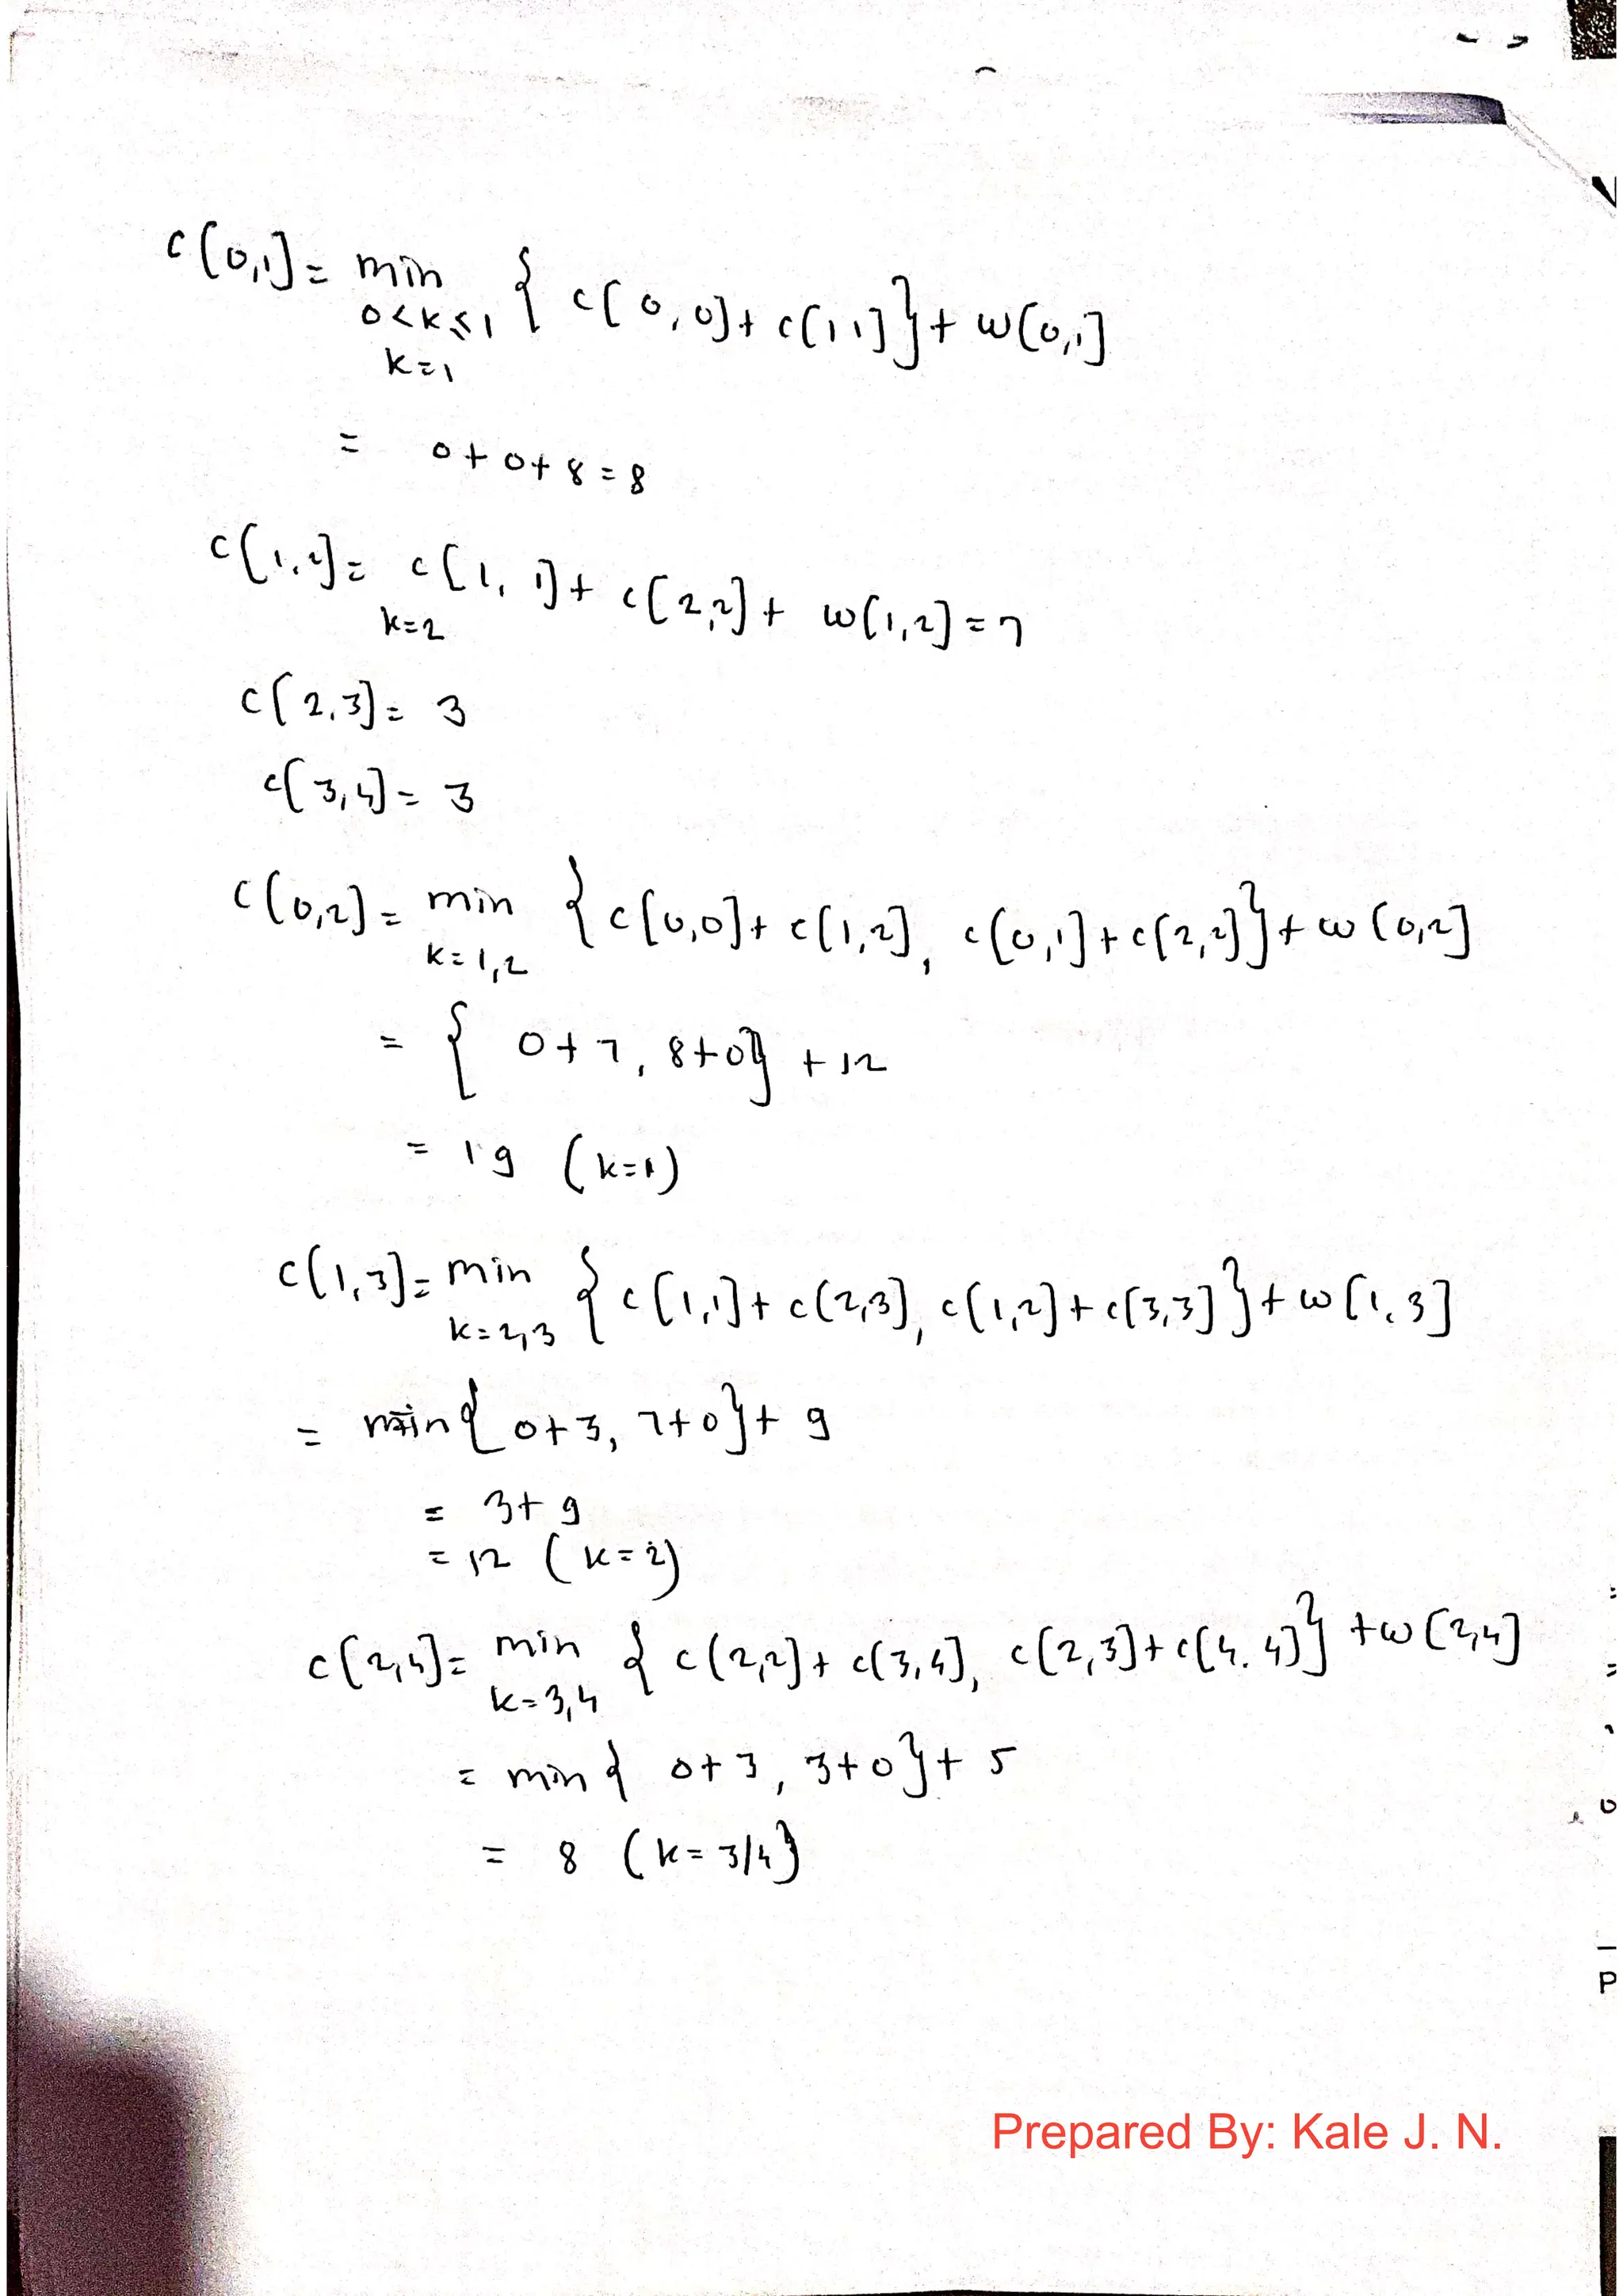 c[0,1] = min { c[0,0] + c[1 1] } + w[0,1]
0<k≤1
k=1
= 0 + 0 + 8 = 8
c[1,2] = c[1, 1] + c[2,2] + w[1,2] = 7
k=2
c[2,3] = 3
c[3,4] = 3
c[0,2] = min { c[0,0] + c[1,2], c[0,1] + c[2,2] } + w[0,2]
k=1,2
= { 0+7, 8+0 } + 12
= 19 (k=1)
c[1,3] = min { c[1,1] + c[2,3], c[1,2] + c[3,3] } + w[1,3]
k=2,3
= min { 0+3, 7+0 } + 9
= 3+9
= 12 (k=2)
c[2,4] = min { c[2,2] + c[3,4], c[2,3] + c[4,4] } + w[2,4]
k=3,4
= min { 0+3, 3+0 } + 5
= 8 (k=3/4)
P
Prepared By: Kale J. N.